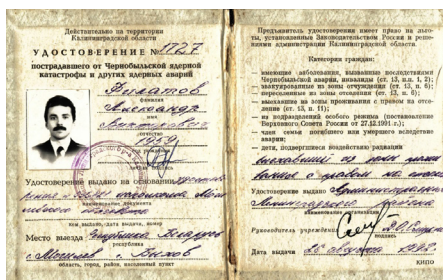 Действительно на территории
Калининградской области
УДОСТОВЕРЕНИЕ № 1727
пострадавшего от Чернобыльской ядерной
катастрофы и других ядерных аварий
Филатов
фамилия
Александр
имя
Викторович
отчество
Удостоверение выдано на основании
наименование документа
кем выдано, дата выдачи, номер
Место выезда Республика Беларусь
республика
г. Быхов
область, город, район, населенный пункт
Предъявитель удостоверения имеет право на льготы,
установленные Законодательством России и решениями
администрации Калининградской области.
Категория граждан:
— имеющие заболевания, вызванные последствиями
Чернобыльской аварии, инвалиды (ст. 13, п. 1, 2);
— эвакуированные из зоны отчуждения (ст. 13, п. 6);
— переселенные из зоны отселения (ст. 13, п. 6);
— выехавшие из зоны проживания с правом на отселение
— из подразделений особого режима (постановление
Верховного Совета России от 27.12.1991 г.);
— член семьи погибшего или умершего вследствие
аварии;
— дети, подвергшиеся воздействию радиации
Удостоверение выдано Администрацией
Ленинградского района
наименование организации
Руководитель учреждения
подпись
Дата выдачи 25 августа
КИПО